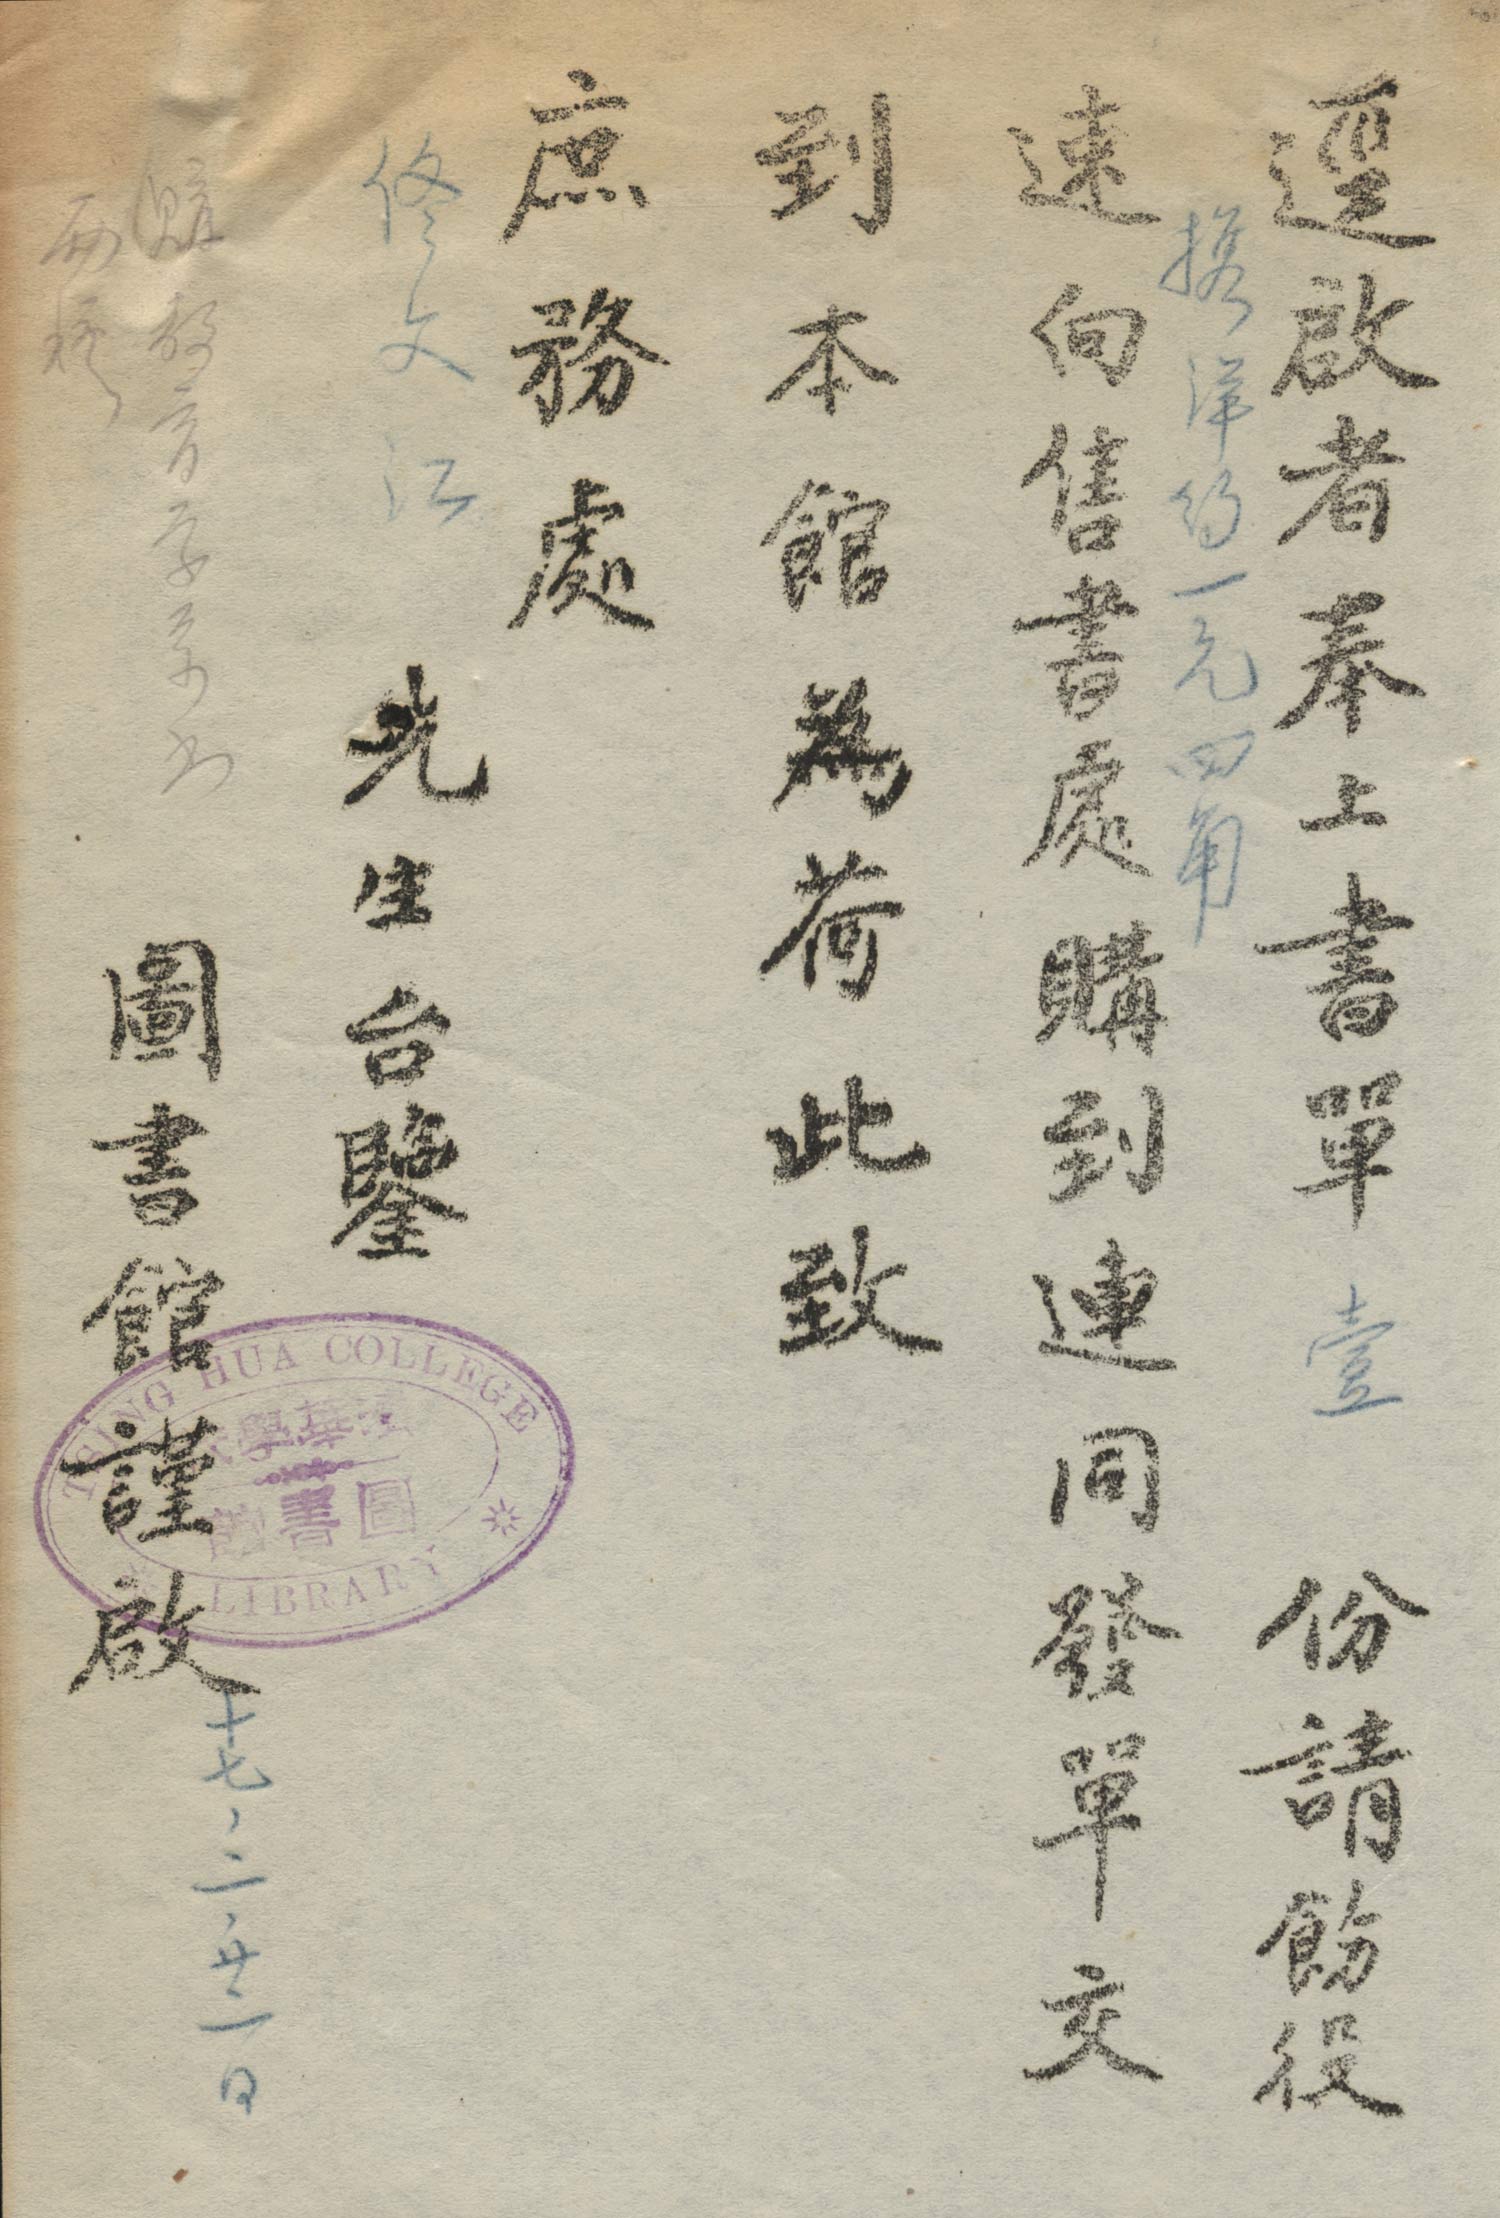 逕啟者奉上書單壹份請飭役
洋約一元四角
速向售書處購到連同發單交
到本館為荷此致
庶務處
佟文江先生台鑒
圖書館謹啟
十七、二、廿一日
TSING HUA COLLEGE
清華學校
圖書館
LIBRARY